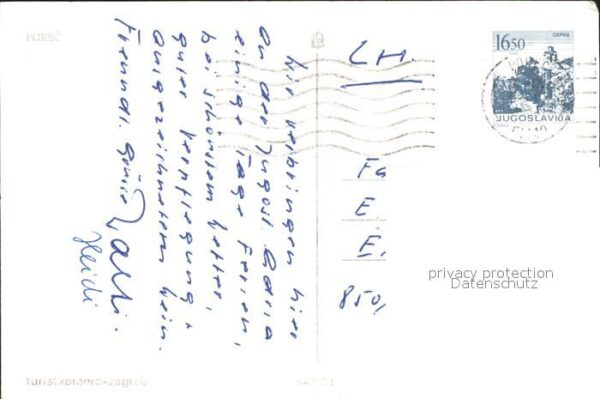 POREČ
Wir verbringen hier
an der Jugosl. Adria
einige Tage Ferien,
bei schönstem Wetter,
guter Verpflegung &
ausgezeichnetem Wein.
Freundl. Grüsse
Heidi
CH
Fa
E
E.
850
16.50
JUGOSLAVIJA
privacy protection
Datenschutz
turistkomerc-zagreb